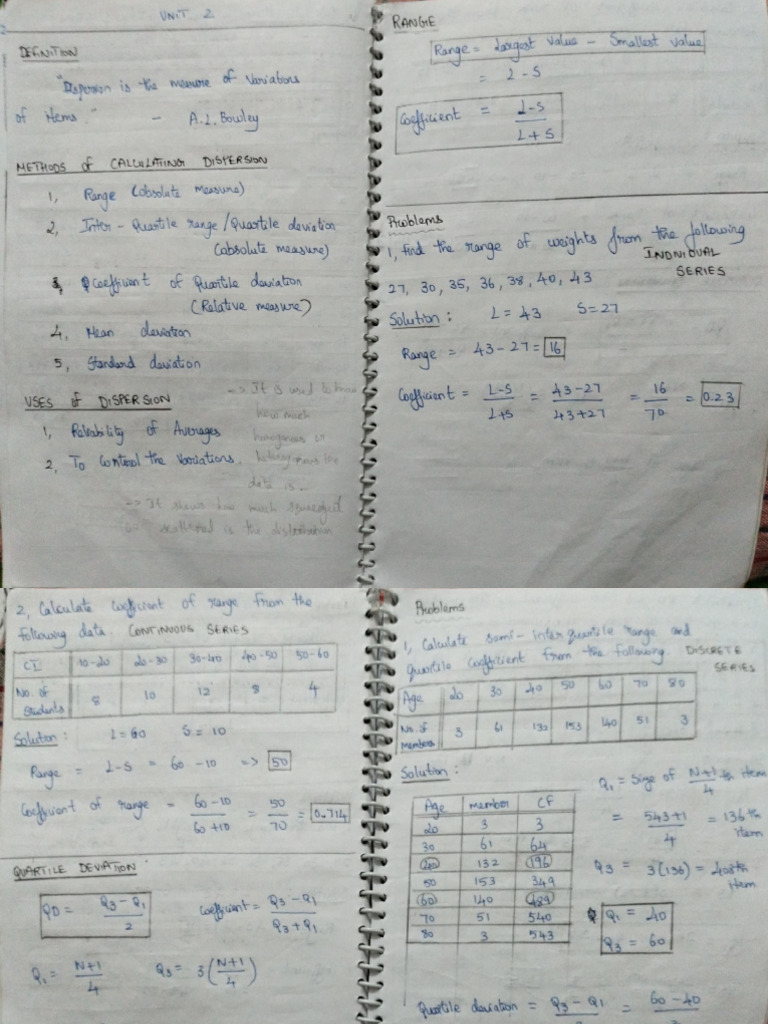 UNIT 2
DEFINITION
"Dispersion is the measure of Variations
of items." - A.L. Bowley
METHODS of CALCULATING DISPERSION
1, Range (absolute measure)
2, Inter - Quartile range / Quartile deviation
(absolute measure)
3, Coefficient of Quartile deviation
(Relative measure)
4, Mean deviation
5, Standard deviation
USES of DISPERSION
1, Reliability of Averages
2, To Control the Variations.
-> It is used to know
how much
data is.
-> It shows how much
scattered is the distribution
RANGE
Range = Largest Value - Smallest value
= L - S
Coefficient = L-S / L+S
Problems
1, find the range of weights from the following
INDIVIDUAL SERIES
27, 30, 35, 36, 38, 40, 43
Solution : L = 43 S = 27
Range = 43 - 27 = 16
Coefficient = L-S / L+S = 43-27 / 43+27 = 16 / 70 = 0.23
2, Calculate coefficient of range from the
following data CONTINUOUS SERIES
CI 10-20 20-30 30-40 40-50 50-60
No. of students 8 10 12 8 4
Solution : L = 60 S = 10
Range = L-S = 60 - 10 => 50
Coefficient of range = 60-10 / 60+10 = 50 / 70 = 0.714
QUARTILE DEVIATION
QD = Q3 - Q1 / 2 Coefficient = Q3 - Q1 / Q3 + Q1
Q1 = N+1 / 4 Q3 = 3(N+1 / 4)
Problems
1, Calculate semi-inter quartile range and
quartile coefficient from the following DISCRETE SERIES
Age 20 30 40 50 60 70 80
No. of members 3 61 132 153 140 51 3
Solution :
Q1 = Size of N+1 / 4 th item
= 543+1 / 4 = 136th item
Q3 = 3(136) = 408th item
Q1 = 40
Q3 = 60
Age member CF
20 3 3
30 61 64
40 132 196
50 153 349
60 140 489
70 51 540
80 3 543
Quartile deviation = Q3 - Q1 = 60 - 40